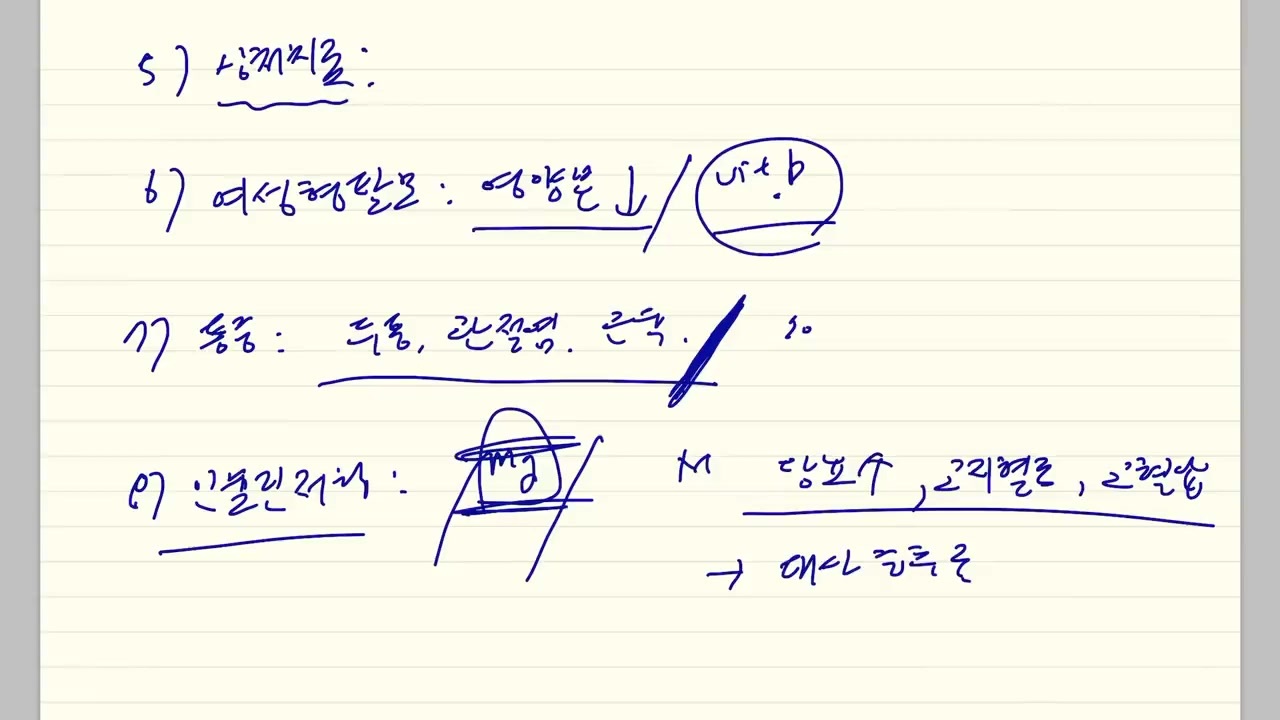 5) 상처치료:
6) 여성형탈모: 영양분↓ / vit b
7) 통증: 두통, 관절염. 근육.
8) 인슐린저항: Mg
당뇨, 고지혈증, 고혈압
→ 대사증후군